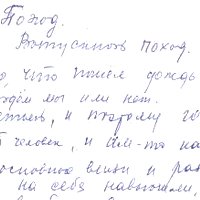 Поход.
Выпускной поход.
о, что пошел дождь
дём мы или нет.
, и поэтому го
человек, и им-то на
основное вещи и ра
на себя навьючили,